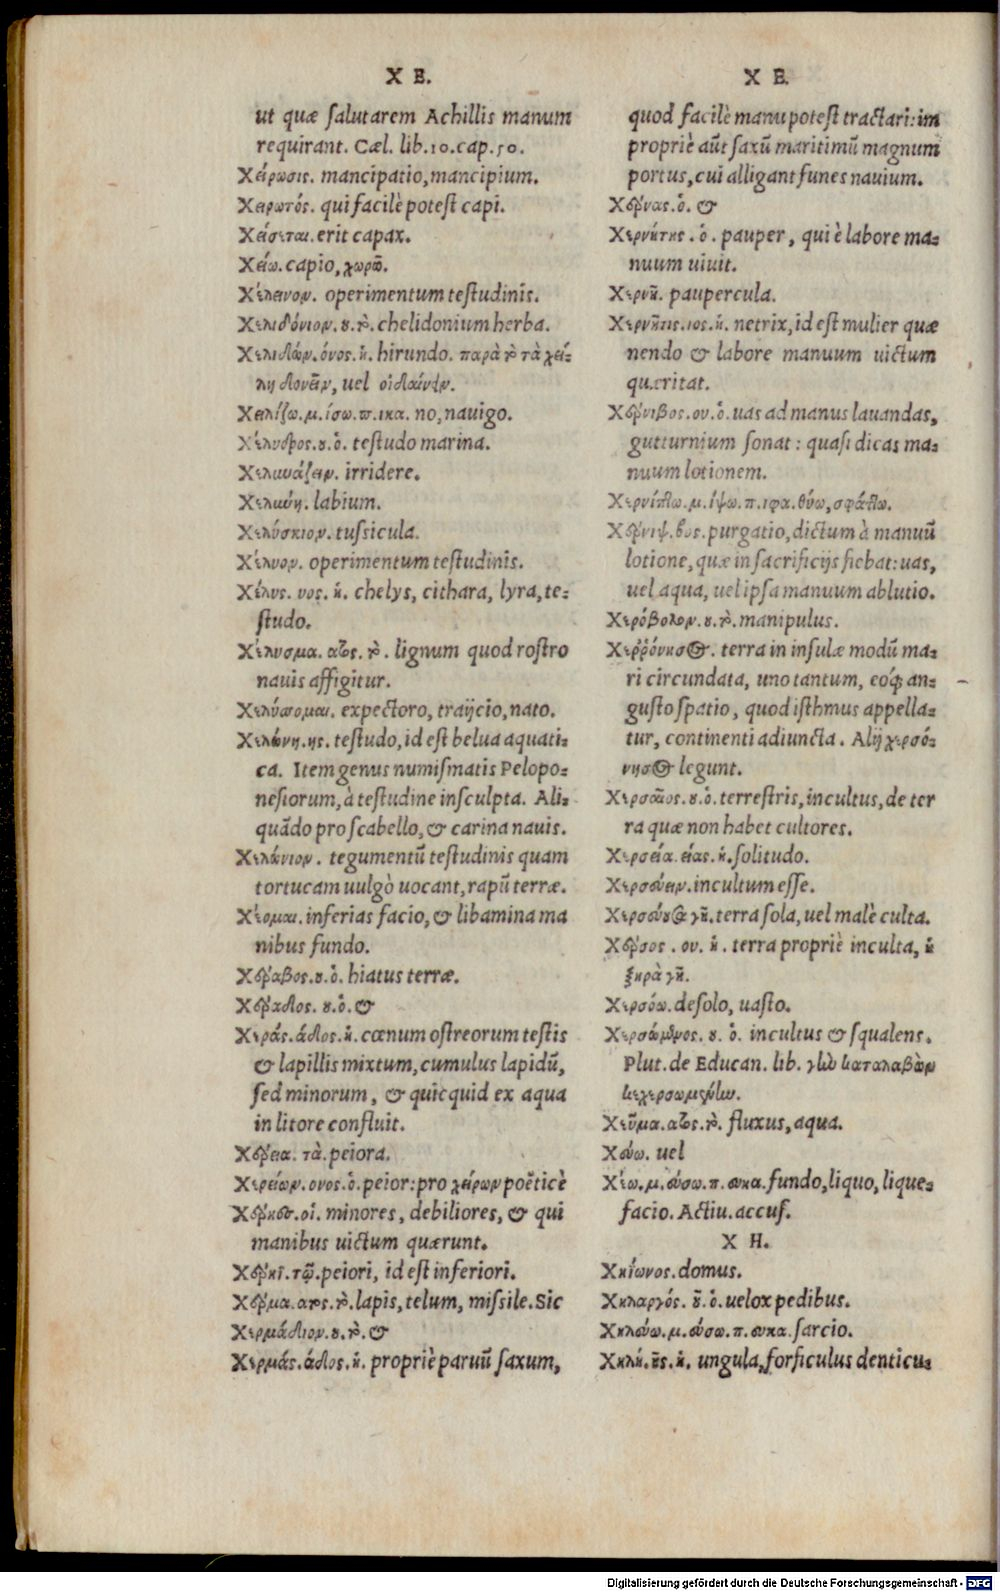 X E.
ut quæ salutarem Achillis manum
requirant. Cæl. lib.10.cap.50.
Χείρωσις. mancipatio, mancipium.
Χειρωτός. qui facilè potest capi.
Χείσεται. erit capax.
Χείω. capio, χωρῶ.
Χέλειον. operimentum testudinis.
Χελιδόνιον. ου. τὸ. chelidonium herba.
Χελιδὼν. όνος. ἡ. hirundo. παρὰ τὸ τὰ χεί-
λη δονεῖν, uel
Χελίζω. μ. ίσω. π. ικα. no, nauigo.
Χέλυδρος. ου. ὁ. testudo marina.
Χελυνάζειν. irridere.
Χελύνη. labium.
Χελύσκιον. tussicula.
Χέλυον. operimentum testudinis.
Χέλυς. υος. ἡ. chelys, cithara, lyra, te-
studo.
Χέλυσμα. ατος. τὸ. lignum quod rostro
nauis affigitur.
Χελύσσομαι. expectoro, traijcio, nato.
Χελώνη. ης. testudo, id est belua aquati-
ca. Item genus numismatis Pelopo-
nesiorum, à testudine insculpta. Ali-
quãdo pro scabello, & carina nauis.
Χελώνιον. tegumentũ testudinis quam
tortucam uulgò uocant, rapũ terræ.
Χέομαι. inferias facio, & libamina ma
nibus fundo.
Χέραβος. ου. ὁ. hiatus terræ.
Χέραδος. ου. ὁ. &
Χεράς. άδος. ἡ. cœnum ostreorum testis
& lapillis mixtum, cumulus lapidũ,
sed minorum, & quicquid ex aqua
in litore confluit.
Χέρεια. τὰ. peiora.
Χερείων. ονος. ὁ. peior: pro χείρων poëticè
Χέρηες. οἱ. minores, debiliores, & qui
manibus uictum quærunt.
Χέρηϊ. τῷ. peiori, id est inferiori.
Χέρμα. ατος. τὸ. lapis, telum, missile. Sic
Χερμάδιον. ου. τὸ. &
Χερμάς. άδος. ἡ. propriè paruũ saxum,
X E.
quod facilè manu potest tractari: im
propriè aũt saxũ maritimũ magnum
portus, cui alligant funes nauium.
Χέρνας. ὁ. &
Χερνήτης. ὁ. pauper, qui è labore ma-
nuum uiuit.
Χερνῆ. paupercula.
Χερνῆτις. ιος. ἡ. netrix, id est mulier quæ
nendo & labore manuum uictum
quæritat.
Χέρνιβος. ου. ὁ. uas ad manus lauandas,
gutturnium sonat: quasi dicas ma-
nuum lotionem.
Χερνίπτω. μ. ίψω. π. ιφα. θύω, σφάττω.
Χέρνιψ. βος. purgatio, dictum à manuũ
lotione, quæ in sacrificijs fiebat: uas,
uel aqua, uel ipsa manuum ablutio.
Χερόβολον. ου. τὸ. manipulus.
Χερρόνησος. terra in insulæ modũ ma-
ri circundata, uno tantum, eoq́; an-
gusto spatio, quod isthmus appella-
tur, continenti adiuncta. Alij χερσό-
νησος legunt.
Χερσαῖος. ου. ὁ. terrestris, incultus, de ter
ra quæ non habet cultores.
Χερσεία. είας. ἡ. solitudo.
Χερσεύειν. incultum esse.
Χερσεύουσα γῆ. terra sola, uel malè culta.
Χέρσος. ου. ἡ. terra propriè inculta, ἡ
ξηρὰ γῆ.
Χερσόω. desolo, uasto.
Χερσώμενος. ου. ὁ. incultus & squalens.
Plut. de Educan. lib. γῆν καταλαβὼν
κεχερσωμένην.
Χεῦμα. ατος. τὸ. fluxus, aqua.
Χεύω. uel
Χέω. μ. εύσω. π. ευκα. fundo, liquo, lique-
facio. Actiu. accus.
X H.
Χηίωνος. domus.
Χηλαργός. οῦ. ὁ. uelox pedibus.
Χηλεύω. μ. εύσω. π. ευκα. sarcio.
Χηλή. ῆς. ἡ. ungula, forficulus denticu-
Digitalisierung gefördert durch die Deutsche Forschungsgemeinschaft - DFG